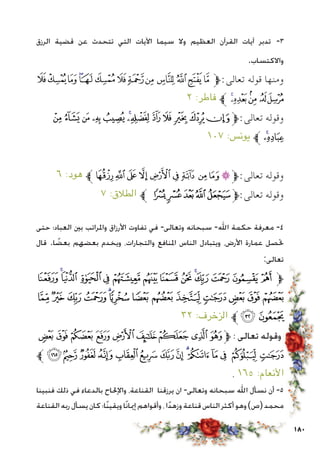 ٣- تدبر آيات القرآن العظيم ولا سيما الآيات التي تتحدث عن قضية الرزق
والاكتساب.
ومنها قوله تعالى: ﴿ مَّا يَفْتَحِ ٱللَّهُ لِلنَّاسِ مِن رَّحْمَةٍ فَلَا مُمْسِكَ لَهَا وَمَا يُمْسِكْ فَلَا
مُرْسِلَ لَهُۥ مِنۢ بَعْدِهِۦ ﴾ فاطر: ٢
وقوله تعالى: ﴿ وَإِن يُرِدْكَ بِخَيْرٍ فَلَا رَآدَّ لِفَضْلِهِۦ يُصِيبُ بِهِۦ مَن يَشَآءُ مِنْ
عِبَادِهِۦ ﴾ يونس: ١٠٧
وقوله تعالى: ﴿ ۞ وَمَا مِن دَآبَّةٍ فِى ٱلْأَرْضِ إِلَّا عَلَى ٱللَّهِ رِزْقُهَا ﴾ هود: ٦
وقوله تعالى: ﴿ سَيَجْعَلُ ٱللَّهُ بَعْدَ عُسْرٍ يُسْرًا ﴾ الطلاق: ٧
٤- معرفة حكمة الله- سبحانه وتعالى- في تفاوت الأرزاق والمراتب بين العباد؛ حتى
تحصل عمارة الأرض ويتبادل الناس المنافع والتجارات، ويخدم بعضهم بعضًا، قال
تعالى:
﴿ أَهُمْ يَقْسِمُونَ رَحْمَتَ رَبِّكَ نَحْنُ قَسَمْنَا بَيْنَهُم مَّعِيشَتَهُمْ فِى ٱلْحَيَوٰةِ ٱلدُّنْيَا وَرَفَعْنَا
بَعْضَهُمْ فَوْقَ بَعْضٍ دَرَجَٰتٍ لِّيَتَّخِذَ بَعْضُهُم بَعْضًا سُخْرِيًّا وَرَحْمَتُ رَبِّكَ خَيْرٌ مِّمَّا
يَجْمَعُونَ ٣٢ ﴾ الزخرف: ٣٢
وقوله تعالى: ﴿ وَهُوَ ٱلَّذِى جَعَلَكُمْ خَلَٰٓئِفَ ٱلْأَرْضِ وَرَفَعَ بَعْضَكُمْ فَوْقَ بَعْضٍ
دَرَجَٰتٍ لِّيَبْلُوَكُمْ فِى مَآ ءَاتَىٰكُمْ إِنَّ رَبَّكَ سَرِيعُ ٱلْعِقَابِ وَإِنَّهُۥ لَغَفُورٌ رَّحِيمٌۢ ١٦٥ ﴾
الأنعام: ١٦٥ .
٥- أن نسأل الله سبحانه وتعالى- ان يرزقنا القناعة. والإلحاح بالدعاء في ذلك فنبينا
محمد (ص) وهو أكثر الناس قناعة وزهدًا , وأقواهم إيمانًا ويقينًا؛ كان يسأل ربه القناعة
١٨٠